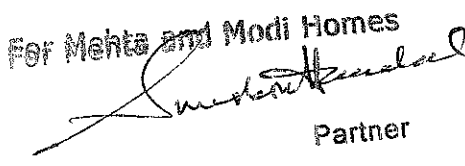 For Mehta and Modi Homes
Partner